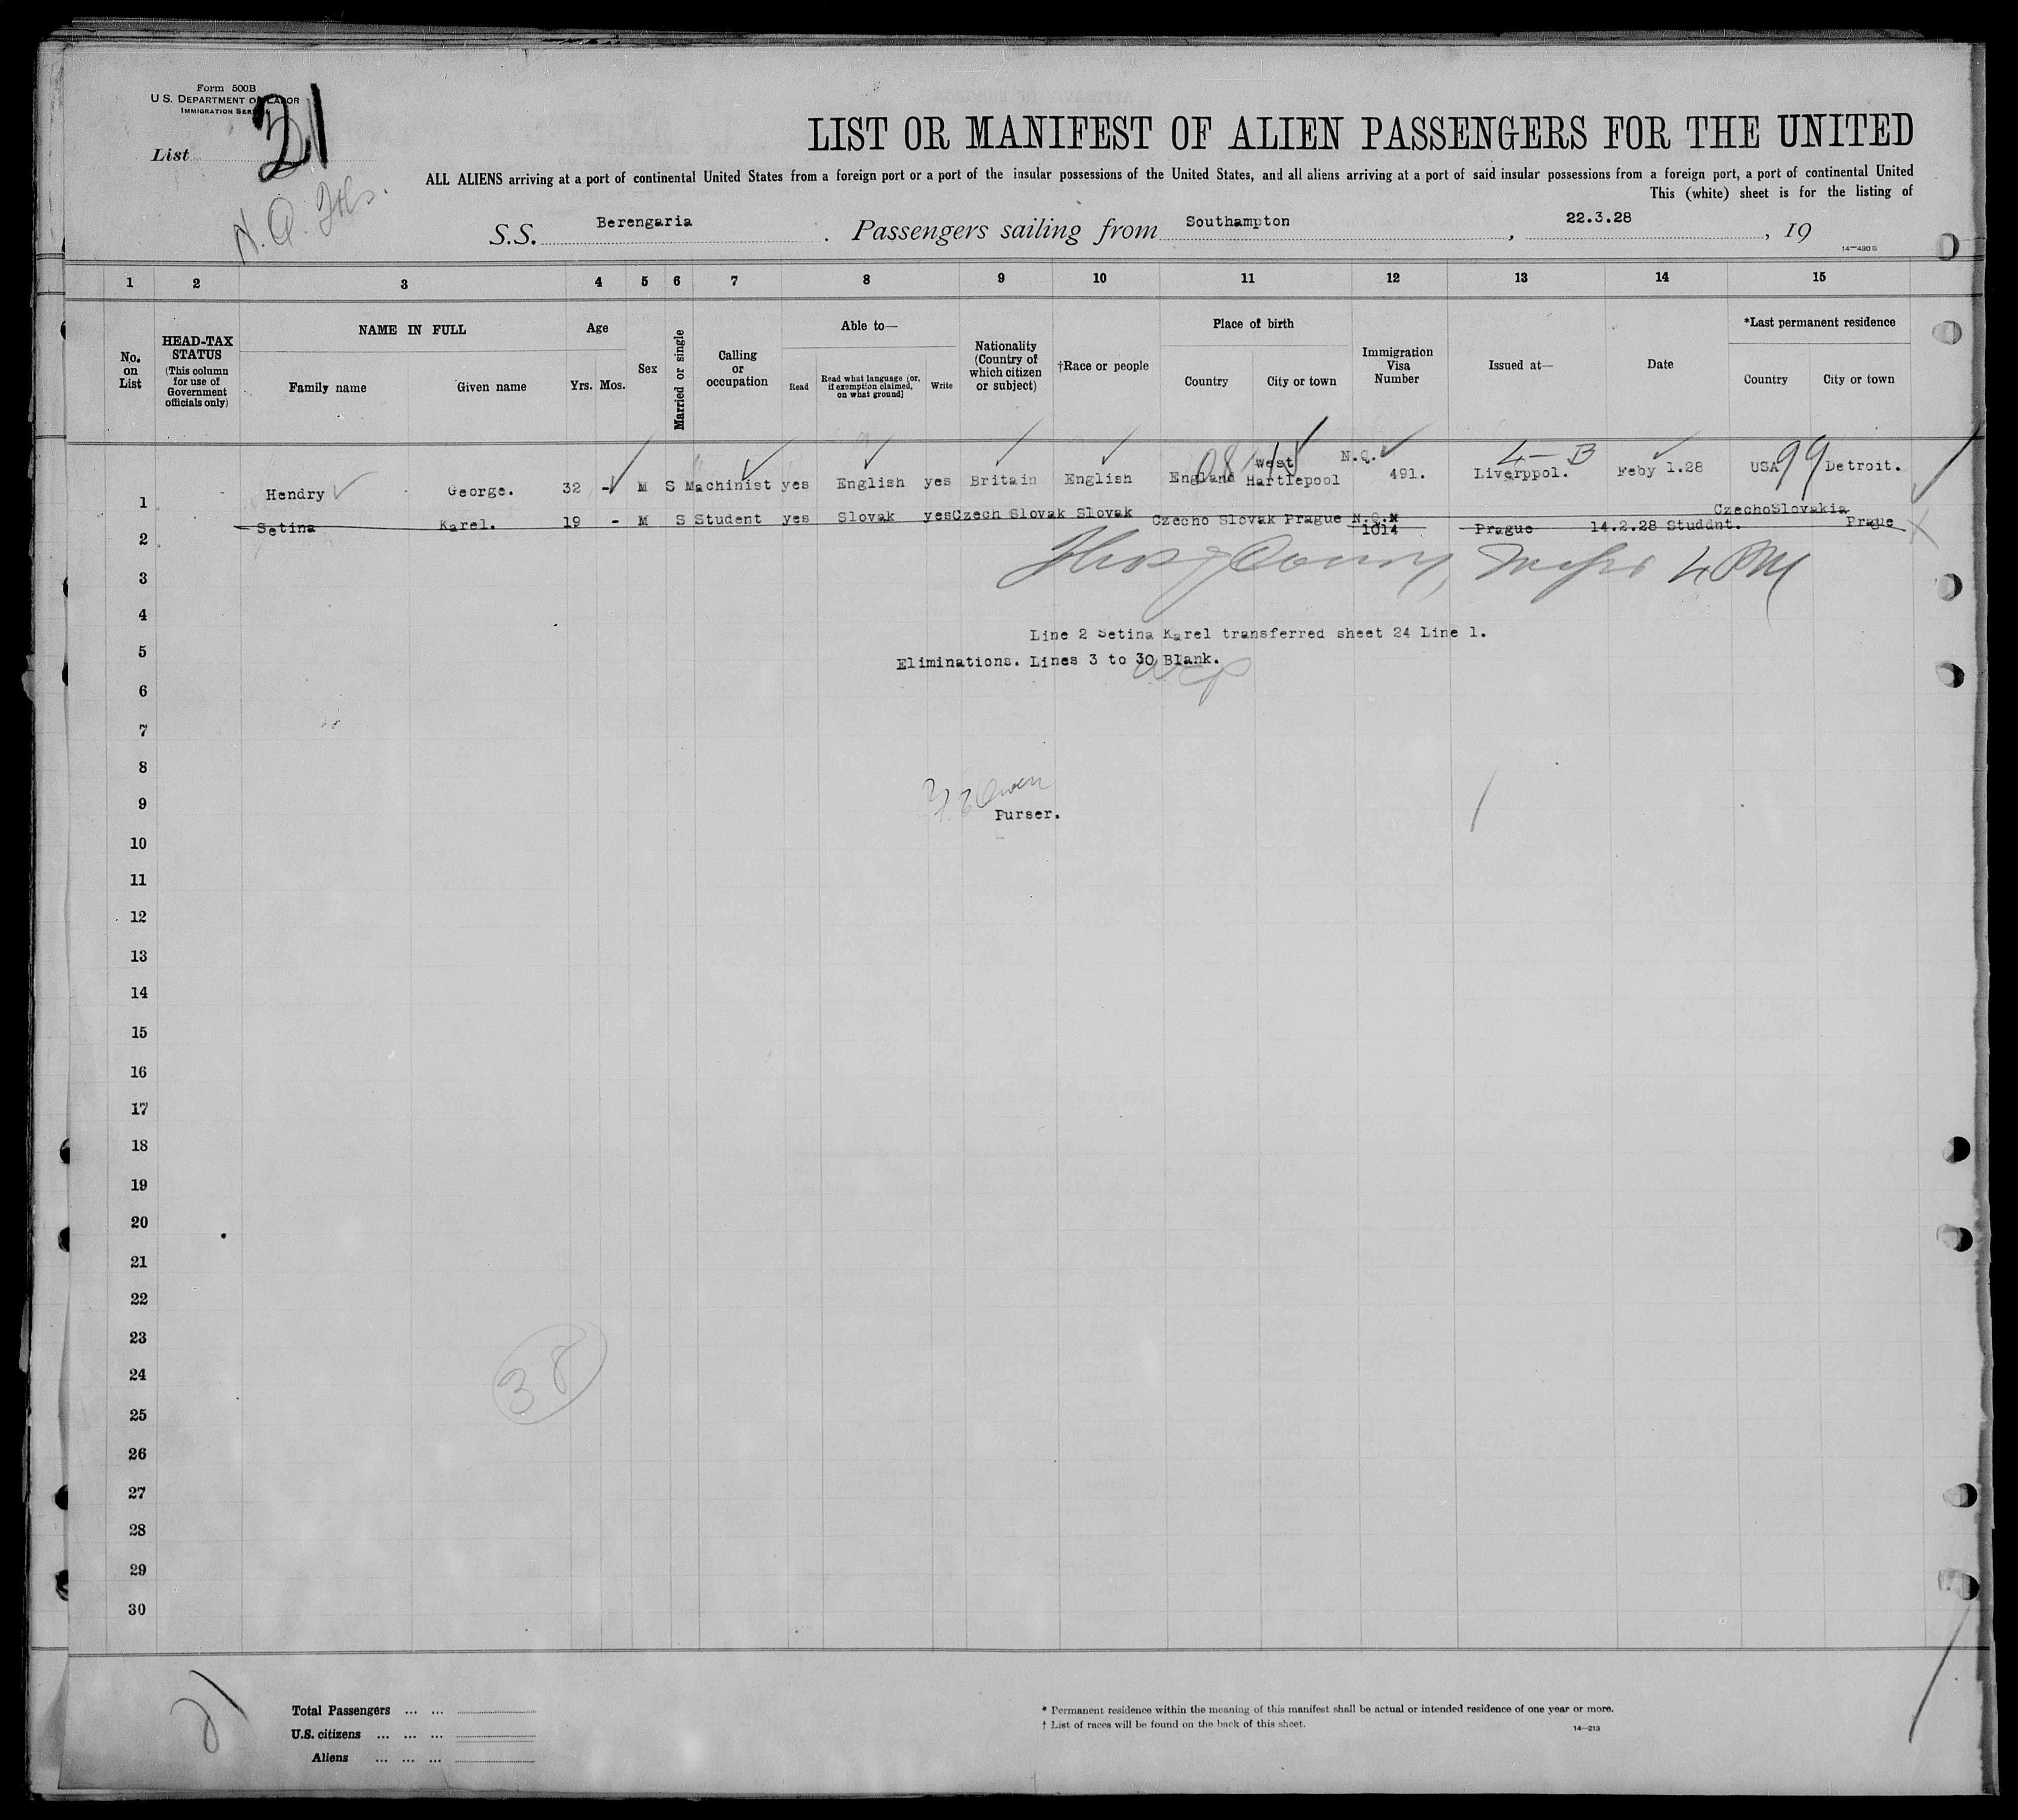 Form 500B
U. S. DEPARTMENT OF LABOR
IMMIGRATION SERVICE
List 21
N. Q.
LIST OR MANIFEST OF ALIEN PASSENGERS FOR THE UNITED
ALL ALIENS arriving at a port of continental United States from a foreign port or a port of the insular possessions of the United States, and all aliens arriving at a port of said insular possessions from a foreign port, a port of continental United
This (white) sheet is for the listing of
S.S. Berengaria . Passengers sailing from Southampton , 22.3.28 , 19
14—430 B
1 2 3 4 5 6 7 8 9 10 11 12 13 14 15
No. on List
HEAD-TAX STATUS (This column for use of Government officials only)
NAME IN FULL
Family name Given name
Age
Yrs. Mos.
Sex
Married or single
Calling or occupation
Able to—
Read
Read what language [or, if exemption claimed, on what ground]
Write
Nationality (Country of which citizen or subject)
†Race or people
Place of birth
Country City or town
Immigration Visa Number
Issued at—
Date
*Last permanent residence
Country City or town
1 Hendry George. 32 - M S Machinist yes English yes Britain English England West Hartlepool N.Q. 491. Liverppol. Feby 1.28 USA Detroit.
4-B
99
2 Setina Karel. 19 - M S Student yes Slovak yes Czech Slovak Slovak Czecho Slovak Prague N.Q.X 1014 Prague 14.2.28 Studdnt. CzechoSlovakia Praue
3
4
Line 2 Setina Karel transferred sheet 24 Line 1.
5
Eliminations. Lines 3 to 30 Blank.
6
7
8
9
Purser.
10
11
12
13
14
15
16
17
18
19
20
21
22
23
24
38
25
26
27
28
29
30
21
Total Passengers ... ...
U.S. citizens ... ... ...
Aliens ... ... ...
* Permanent residence within the meaning of this manifest shall be actual or intended residence of one year or more.
† List of races will be found on the back of this sheet.
14—213